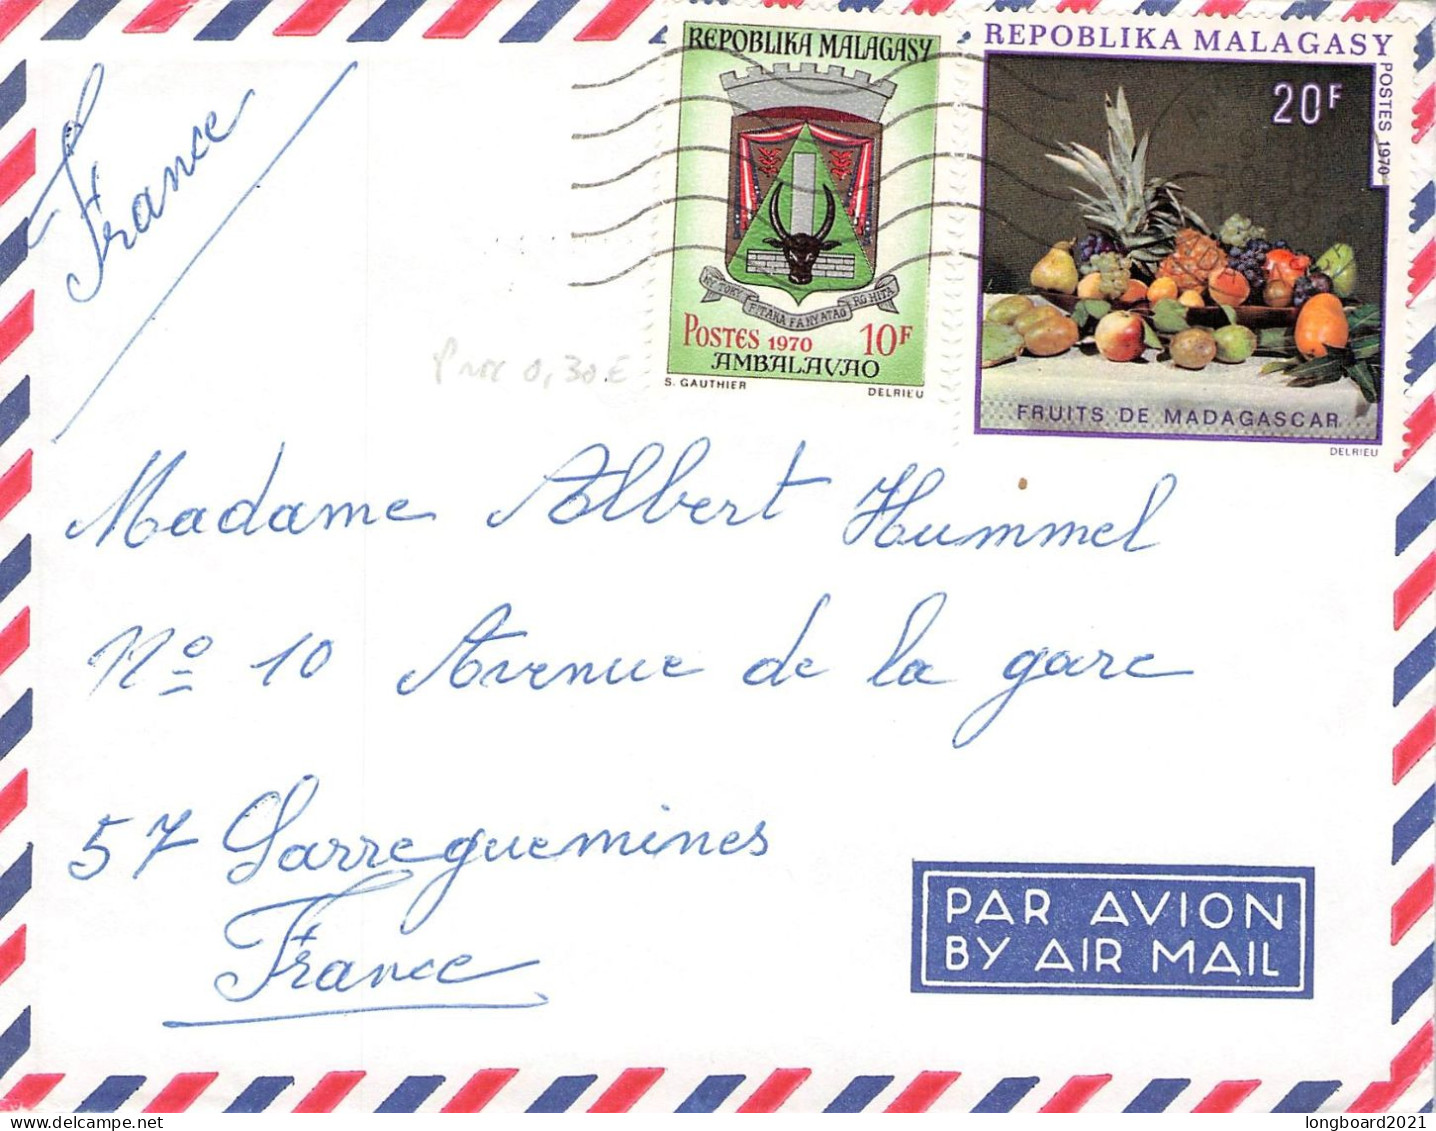 France
REPOBLIKA MALAGASY
RY TOKY FITAKA FANYATAO RO HITA
POSTES 1970 10F
AMBALAVAO
S. GAUTHIER DELRIEU
REPOBLIKA MALAGASY
20F
POSTES 1970
FRUITS DE MADAGASCAR
DELRIEU
0,30€
Madame Albert Hummel
No 10 Avenue de la gare
57 Sarreguemines
France
PAR AVION
BY AIR MAIL
delcampe.net
longboard2021